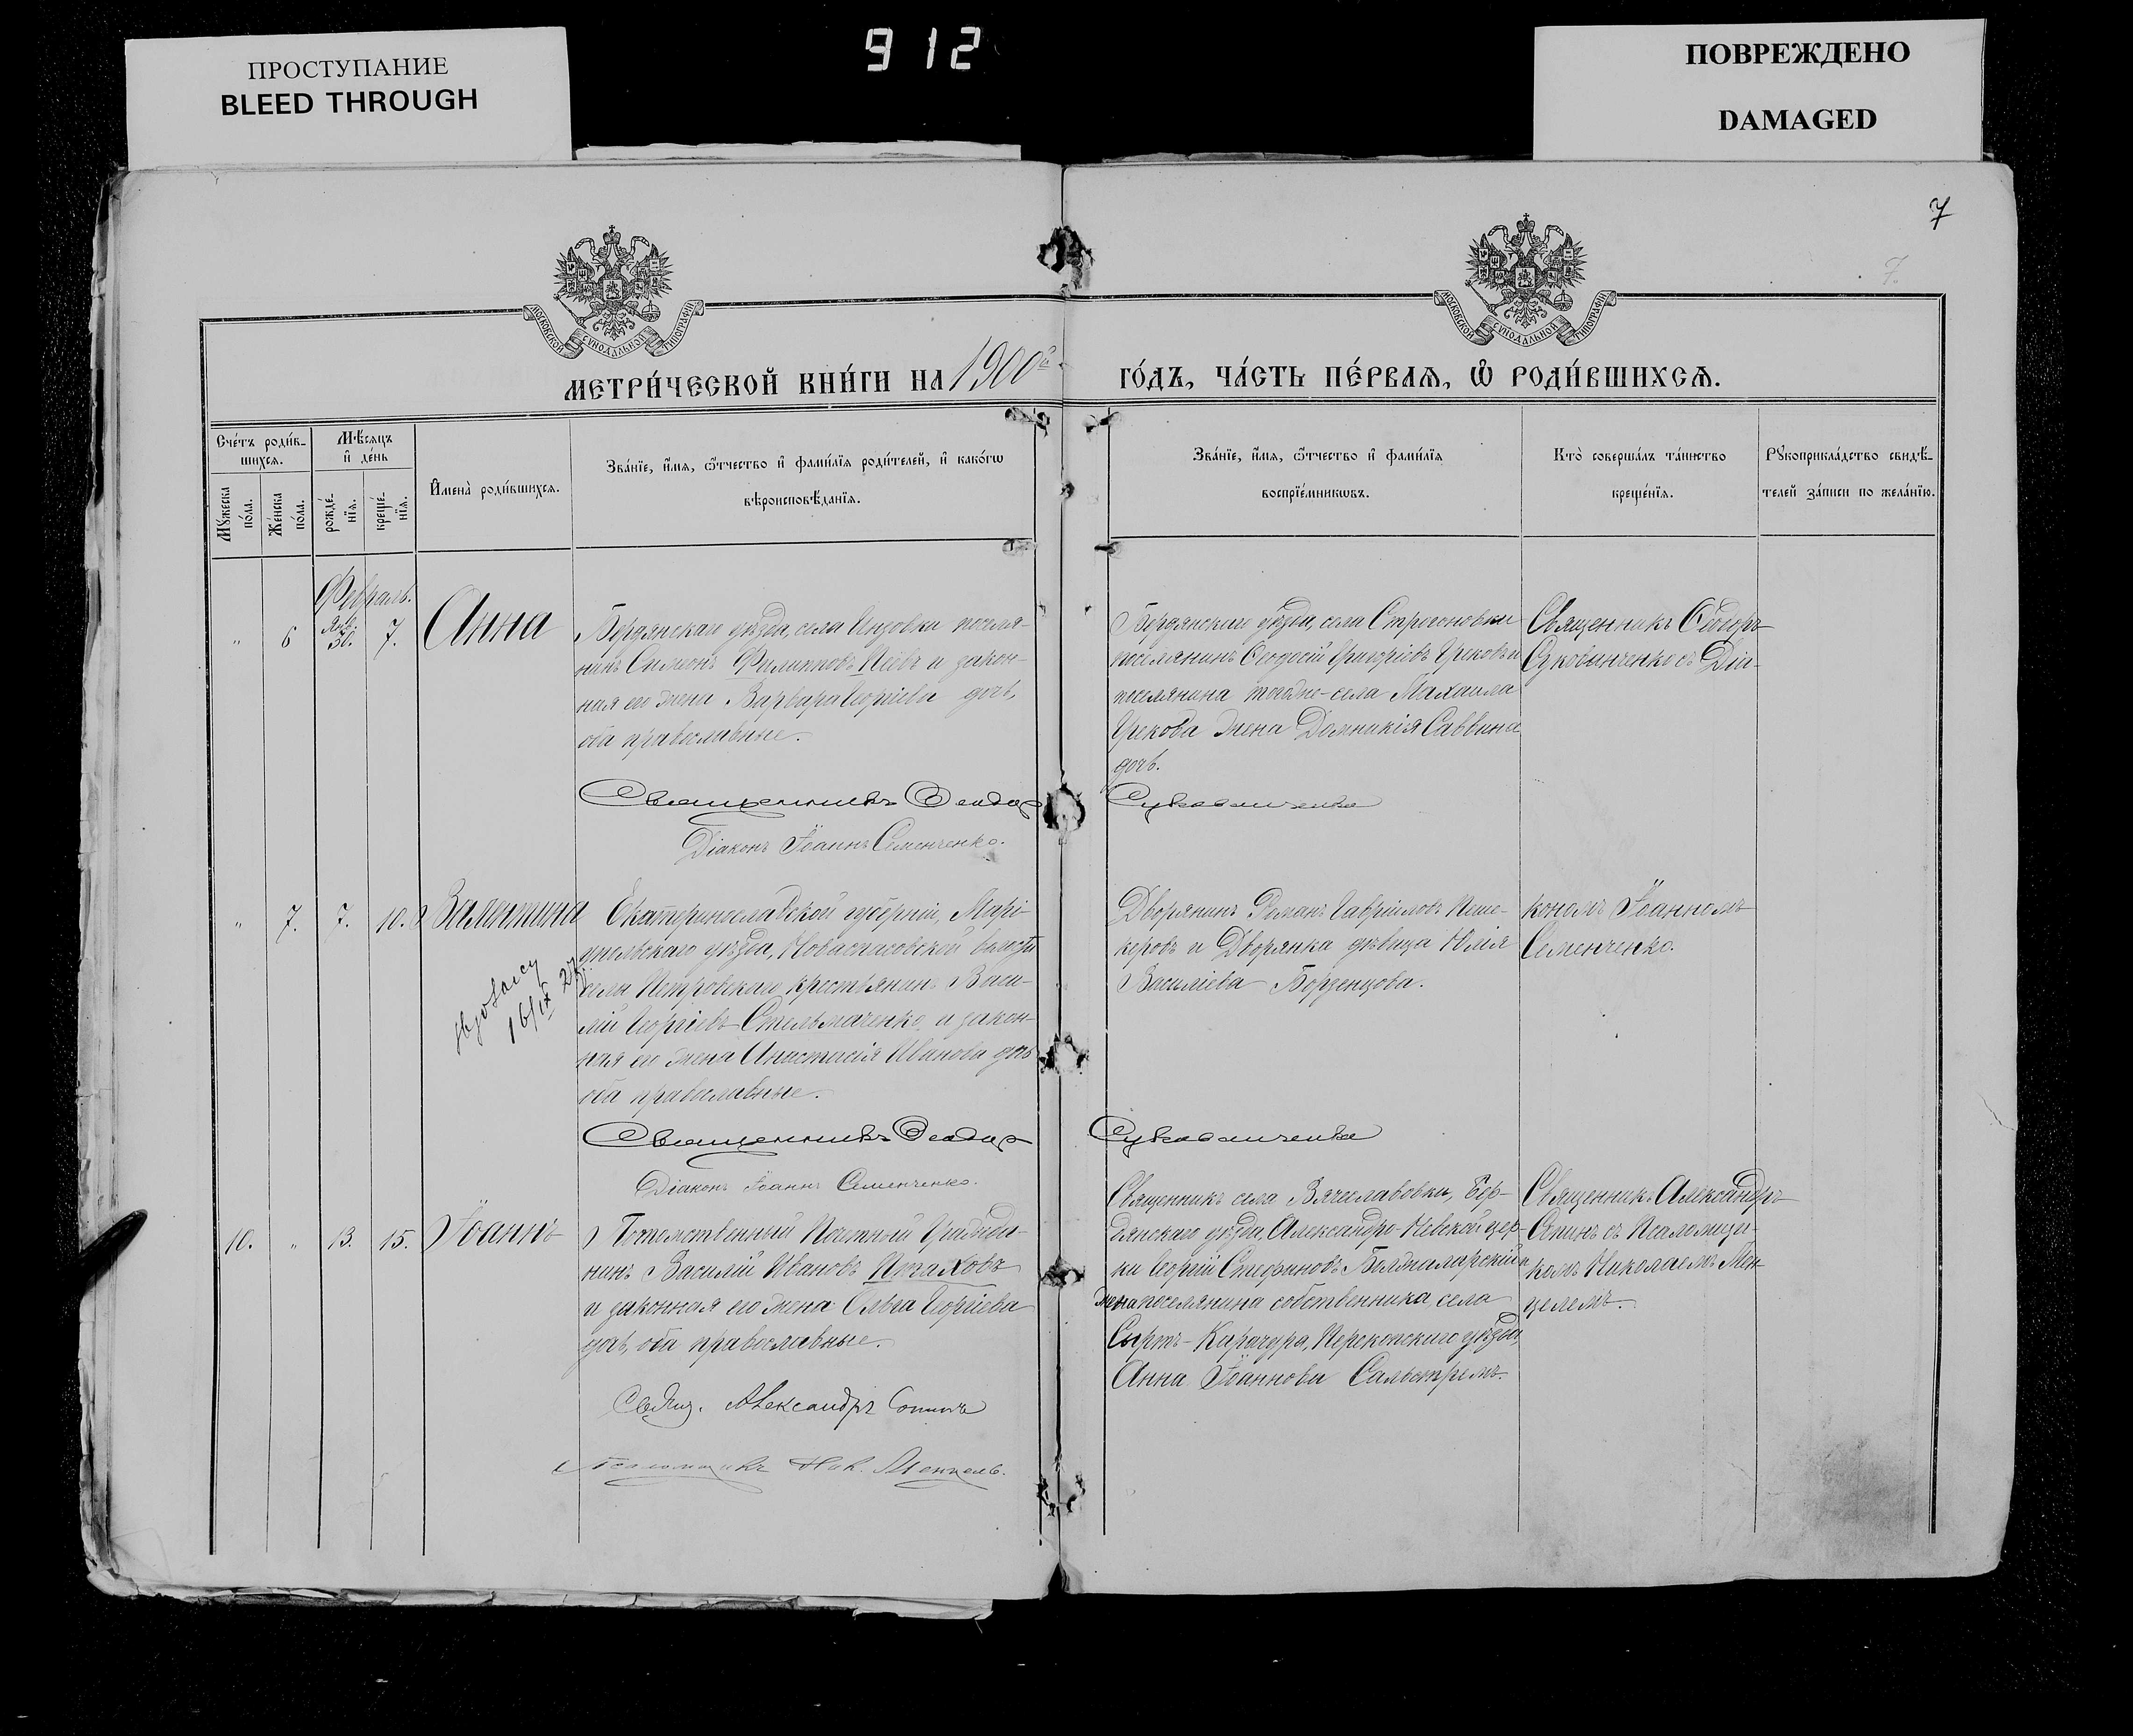 ПРОСТУПАНИЕ
BLEED THROUGH
912
ПОВРЕЖДЕНО
DAMAGED
7
7.
МОСКОВСКОЙ СѴНОДАЛЬНОЙ ТИПОГРАФІИ
МОСКОВСКОЙ СѴНОДАЛЬНОЙ ТИПОГРАФІИ
МЕТРИ́ЧЕСКОЙ КНИ́ГИ НА 1900й
ГО́ДЪ, ЧА́СТЬ ПЕ́РВАѦ, Ѡ҆ РОДИ́ВШИХСѦ.
Сче́тъ роди́в-
шихсѧ.
Мѣ́сѧцъ
и҆ де́нь
Мꙋ́жеска
по́ла.
Же́нска
по́ла.
рожде́-
нїѧ.
креще́-
нїѧ.
И҆мена̀ роди́вшихсѧ.
Зва́нїе, и҆́мѧ, ѻ҆́тчество и҆ фами́лїѧ роди́телей, и҆ како́гѡ
вѣроисповѣ́данїѧ.
Зва́нїе, и҆́мѧ, ѻ҆́тчество и҆ фами́лїѧ
воспрїе́мникѡвъ.
Кто̀ соверша́лъ та́инство
креще́нїѧ.
Рꙋкоприкла́дство свидѣ́-
телей за́писи по жела́нїю.
Февраль.
Янв.
" 6 30. 7. Анна
Бердянскаго уѣзда, села Инзовки поселя-
нинъ Симеонъ Филипповъ и закон-
ная его жена Варвара Георгіева дочь,
оба православные.
Священникъ Ѳеодоръ
Діаконъ Іоаннъ Семенченко.
Бердянскаго уѣзда, села Строгоновки
поселянинъ Ѳеодосій Григоріевъ Грековъ и
поселянина того же села Михаила
Грекова жена Домникія Саввина
дочь.
Суковинченко
Священникъ Ѳеодоръ
Суковинченко съ Діа-
" 7. 7. 10. Валентина
16/IX 27
Екатеринославской губерніи, Марі-
упольскаго уѣзда, Новоспасовской волости
села Петровскаго, крестьянинъ Васи-
лій Георгіевъ Стельмаченко и закон-
ная его жена Анастасія Иванова дочь
оба православные.
Священникъ Ѳеодоръ
Діаконъ Іоаннъ Семенченко.
Дворянинъ Романъ Гавріиловъ Пеше-
керовъ и Дворянка дѣвица Юлія
Василіева Борзенцова.
Суковинченко
кономъ Іоанномъ
Семенченко.
10. " 13. 15. Іоаннъ
Потомственный Почетный Гражда-
нинъ Василій Ивановъ
и законная его жена Ольга Георгіева
дочь, оба православные.
Свящ. Александръ
Псаломщикъ Ник. Менцель.
Священникъ села Вячеславовки, Бер-
дянскаго уѣзда, Александро-Невской цер-
кви Георгій Стефановъ и
жена поселянина собственника, села
Сыртъ-Карачура, Перекопскаго уѣзда,
Анна Іоаннова Сальстремъ.
Священникъ Александръ
съ Псаломщи-
комъ Николаемъ Мен-
целемъ.